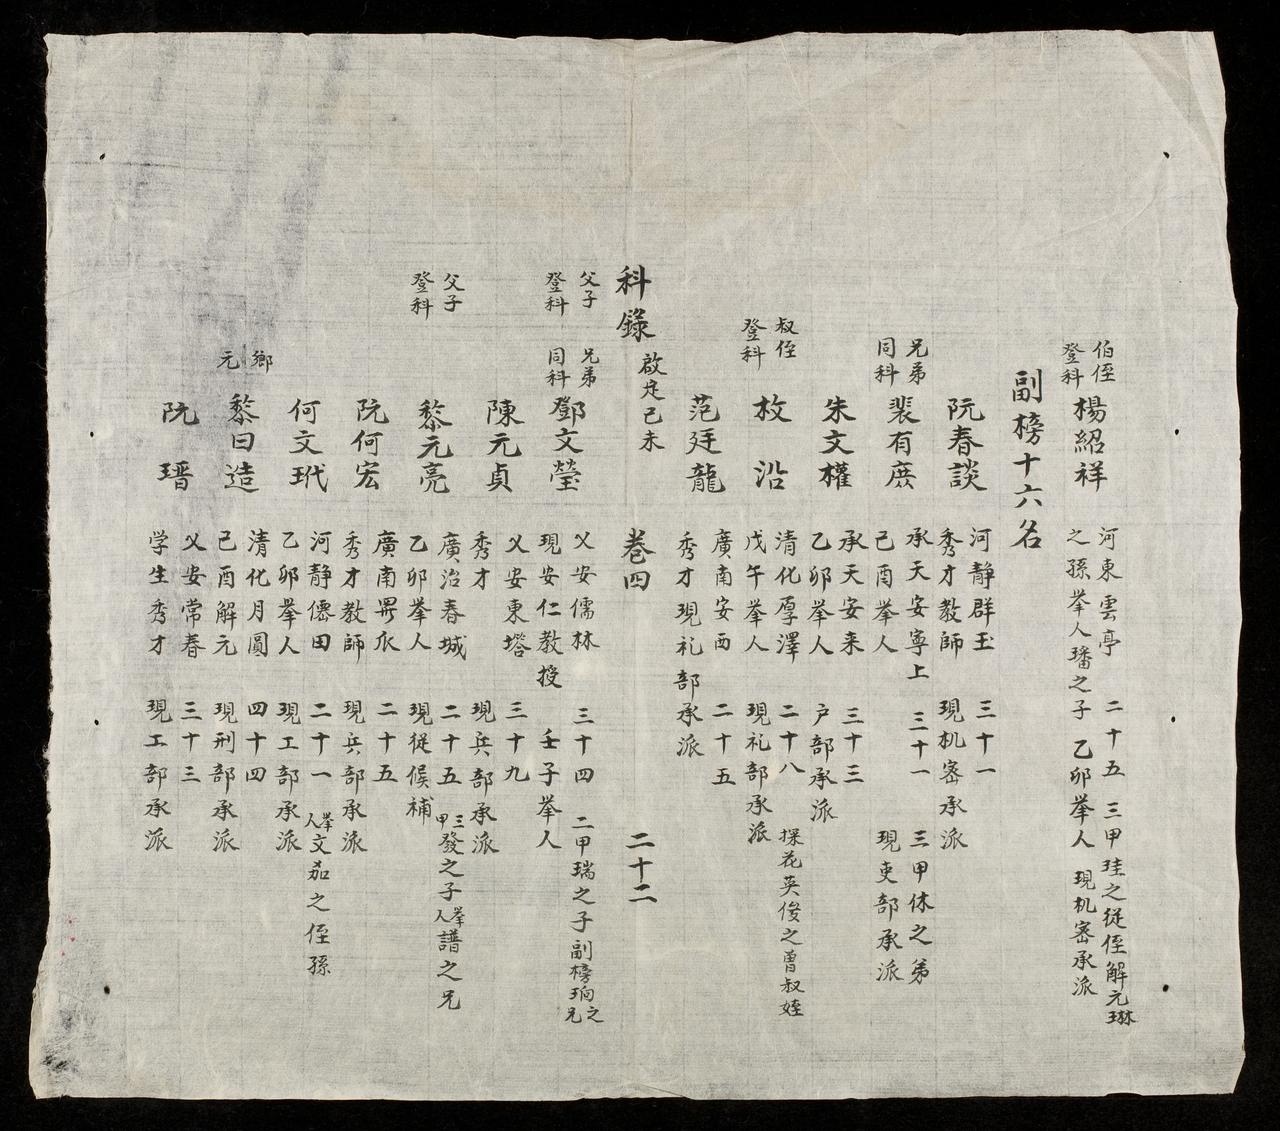 伯侄
登科
楊紹祥
河東雲亭 二十五 三甲珪之從侄解元琳
之孫舉人璠之子 乙卯舉人 現机密承派
副榜十六名
阮春談
河靜群玉 三十一
秀才教師 現机密承派
兄弟
同科
裴有庶
承天安寧上 三十一 三甲休之弟
己酉舉人 現吏部承派
朱文權
承天安来 三十三
乙卯舉人 户部承派
叔侄
登科
枚沿
清化厚澤 二十八 探花英俊之曾叔姪
戊午舉人 現礼部承派
范廷龍
廣南安西 二十五
秀才現礼部承派
科錄 啟定己未 卷四 二十二
父子
登科
兄弟
同科
鄧文瑩
乂安儒林 三十四 二甲瑞之子副榜珦之兄
現安仁教授 壬子舉人
陳元貞
乂安東塔 三十九
秀才 現兵部承派
父子
登科
黎元亮
廣治春城 二十五 三甲發之子舉人譜之兄
乙卯舉人 現從候補
阮何宏
廣南 二十五
秀才教師 現兵部承派
何文玳
河靜僊田 二十一 舉人文茄之侄孫
乙卯舉人 現工部承派
鄉元
黎曰造
清化月圓 四十四
己酉解元 現刑部承派
阮瑨
乂安常春 三十三
学生秀才 現工部承派